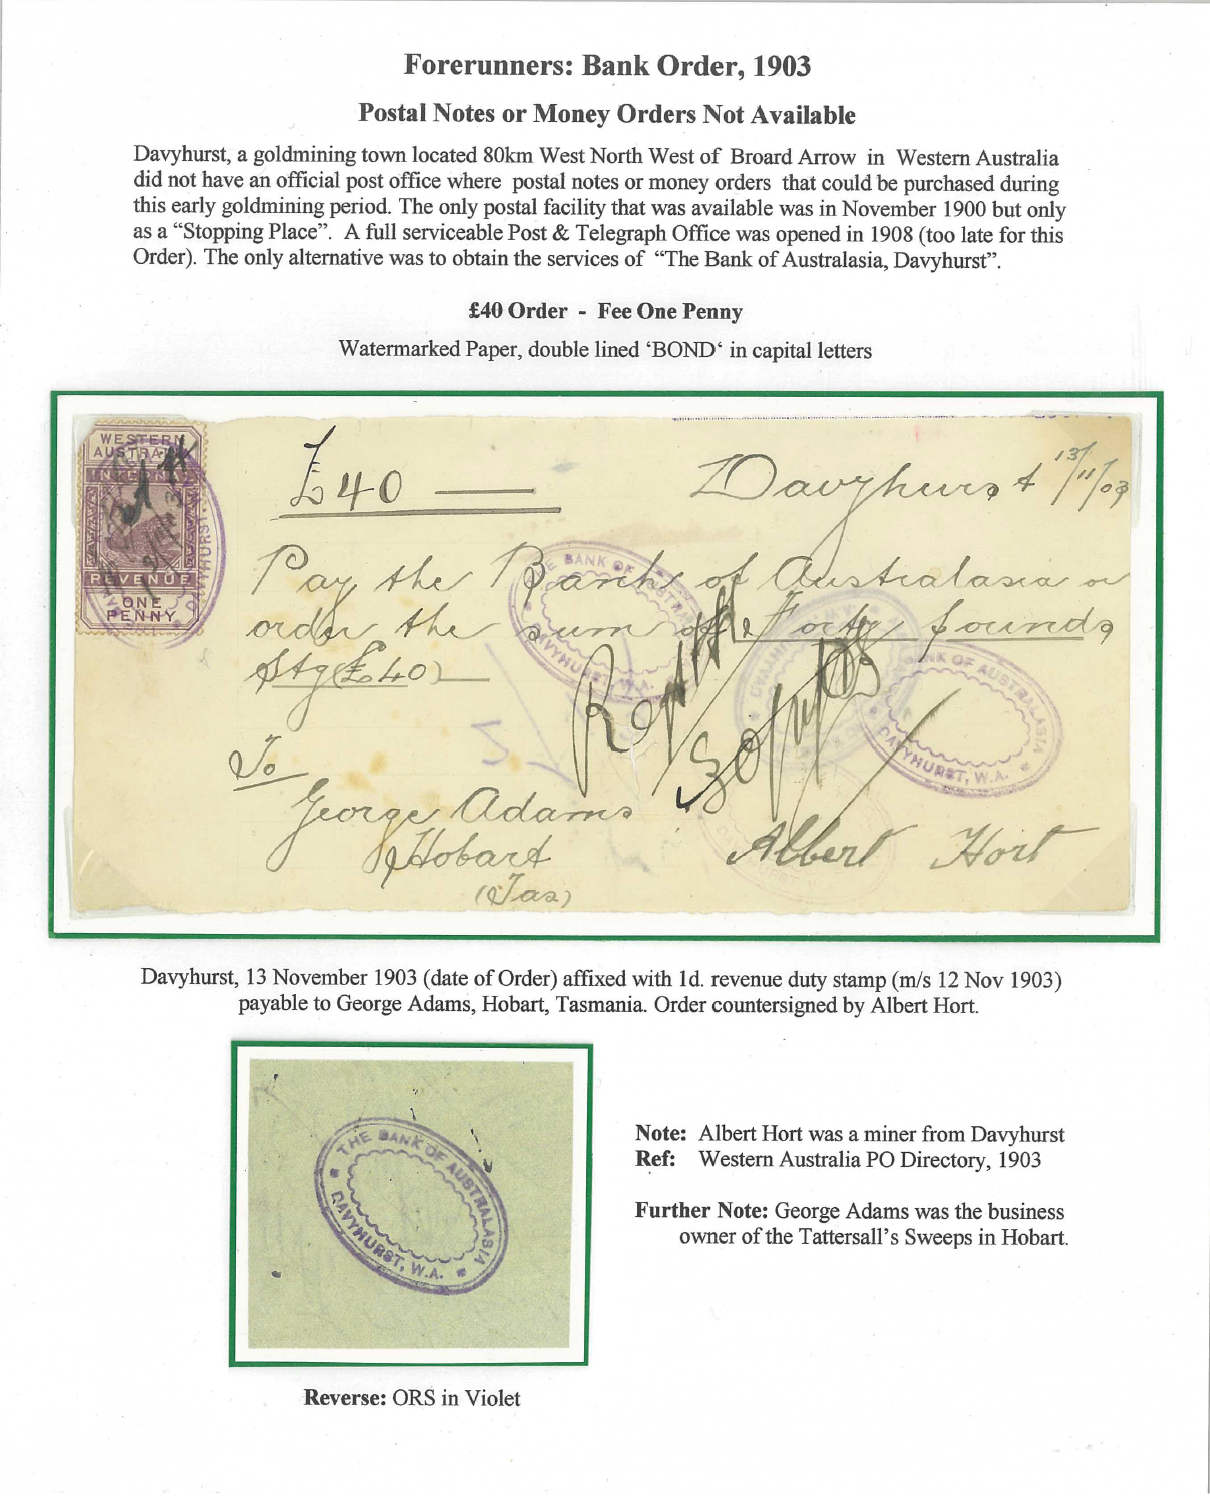 Forerunners: Bank Order, 1903
Postal Notes or Money Orders Not Available
Davyhurst, a goldmining town located 80km West North West of Broard Arrow in Western Australia
did not have an official post office where postal notes or money orders that could be purchased during
this early goldmining period. The only postal facility that was available was in November 1900 but only
as a “Stopping Place”. A full serviceable Post & Telegraph Office was opened in 1908 (too late for this
Order). The only alternative was to obtain the services of “The Bank of Australasia, Davyhurst”.
£40 Order - Fee One Penny
Watermarked Paper, double lined ‘BOND‘ in capital letters
WESTERN
AUSTRALIA
INTERNAL
REVENUE
ONE
PENNY
DAVYHURST
£40
Davyhurst 13/11/03
Pay the Bank of Australasia or
order the sum of Forty pounds
Stg (£40)
THE BANK OF AUSTRALASIA
DAVYHURST, W.A.
BANK OF AUSTRALASIA
DAVYHURST, W.A.
To
George Adams
Hobart
(Tas)
Albert Hort
Davyhurst, 13 November 1903 (date of Order) affixed with 1d. revenue duty stamp (m/s 12 Nov 1903)
payable to George Adams, Hobart, Tasmania. Order countersigned by Albert Hort.
THE BANK OF AUSTRALASIA
DAVYHURST, W.A.
Note: Albert Hort was a miner from Davyhurst
Ref: Western Australia PO Directory, 1903
Further Note: George Adams was the business
owner of the Tattersall’s Sweeps in Hobart.
Reverse: ORS in Violet